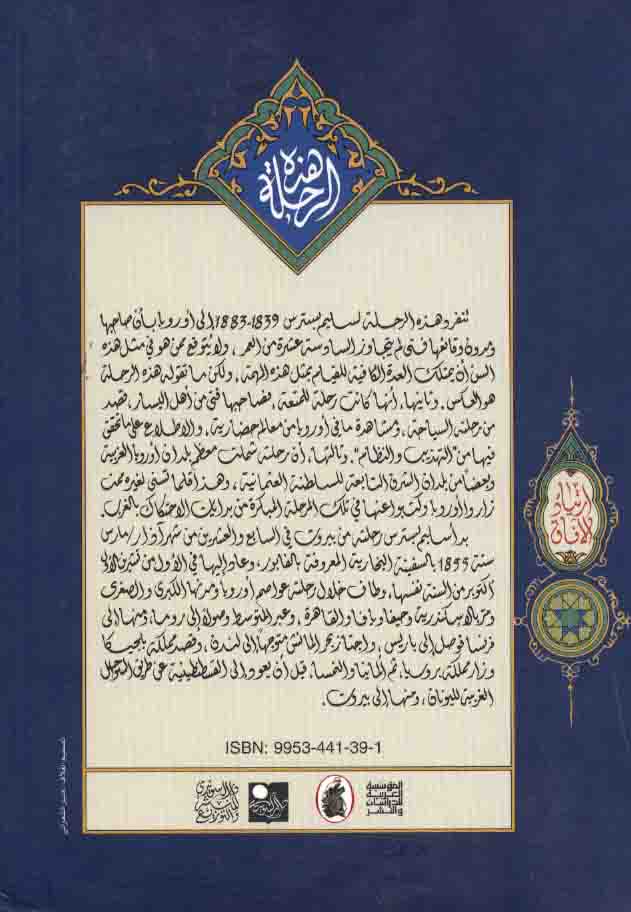 هذه
الرحلة
تنفرد هذه الرحلة لسليم بسترس 1839-1883 إلى أوروبا بأن صاحبها
ومدون وقائعها فتى لم يتجاوز السادسة عشرة من العمر، ولا يُتوقع ممن هو في مثل هذه
السن أن يمتلك العدة الكافية للقيام بمثل هذه المهمة. ولكن ما تقوله هذه الرحلة
هو العكس. وثانيها، أنها كانت رحلة للمتعة. فصاحبها فتى من أهل اليسار، قصد
من رحلته السياحة، ومشاهدة ما في أوروبا من معالم حضارية، والاطلاع على ما تحقق
فيها من "التهذيب والنظام". وثالثها، أن رحلته شملت معظم بلدان أوروبا الغربية
وبعضاً من بلدان الشرق التابعة للسلطنة العثمانية، وهذا قلما تسنى لغيره ممن
زاروا أوروبا وكتبوا عنها في تلك المرحلة المبكرة من بدايات الاحتكاك بالغرب.
بدأ سليم بسترس رحلته من بيروت في السابع والعشرين من شهر آذار/مارس
سنة 1855 بالسفينة البخارية المعروفة بالفابور، وعاد إليها في الأول من تشرين الأول
أكتوبر من السنة نفسها. وطاف خلال رحلته عواصم أوروبا ومدنها الكبرى والصغرى
ومر بالإسكندرية وحيفا ويافا والقاهرة، وعبر المتوسط وصولاً إلى روما، ومنها إلى
فرنسا فوصل إلى باريس، واجتاز بحر المانش متوجهاً إلى لندن، وقصد مملكة بلجيكا
وزار مملكة بروسيا، ثم ألمانيا والنمسا. قبل أن يعود إلى القسطنطينية عن طريق السواحل
الغربية لليونان، ومنها إلى بيروت.
ISBN: 9953-441-39-1
المؤسسة
العربية
للدراسات
والنشر
دار السويدي
للنشر
والتوزيع
ارتياد
الآفاق
تصميم الغلاف: منير الشعراني